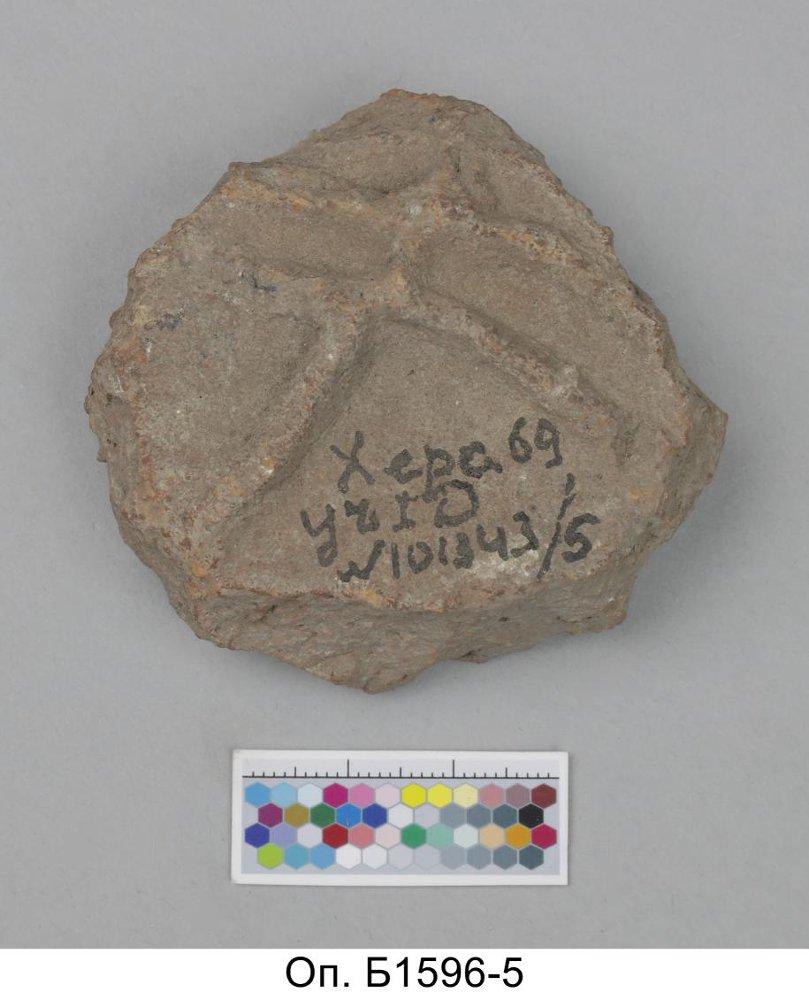 Хера 69,
уч I D
№101343/5
Оп. Б1596-5